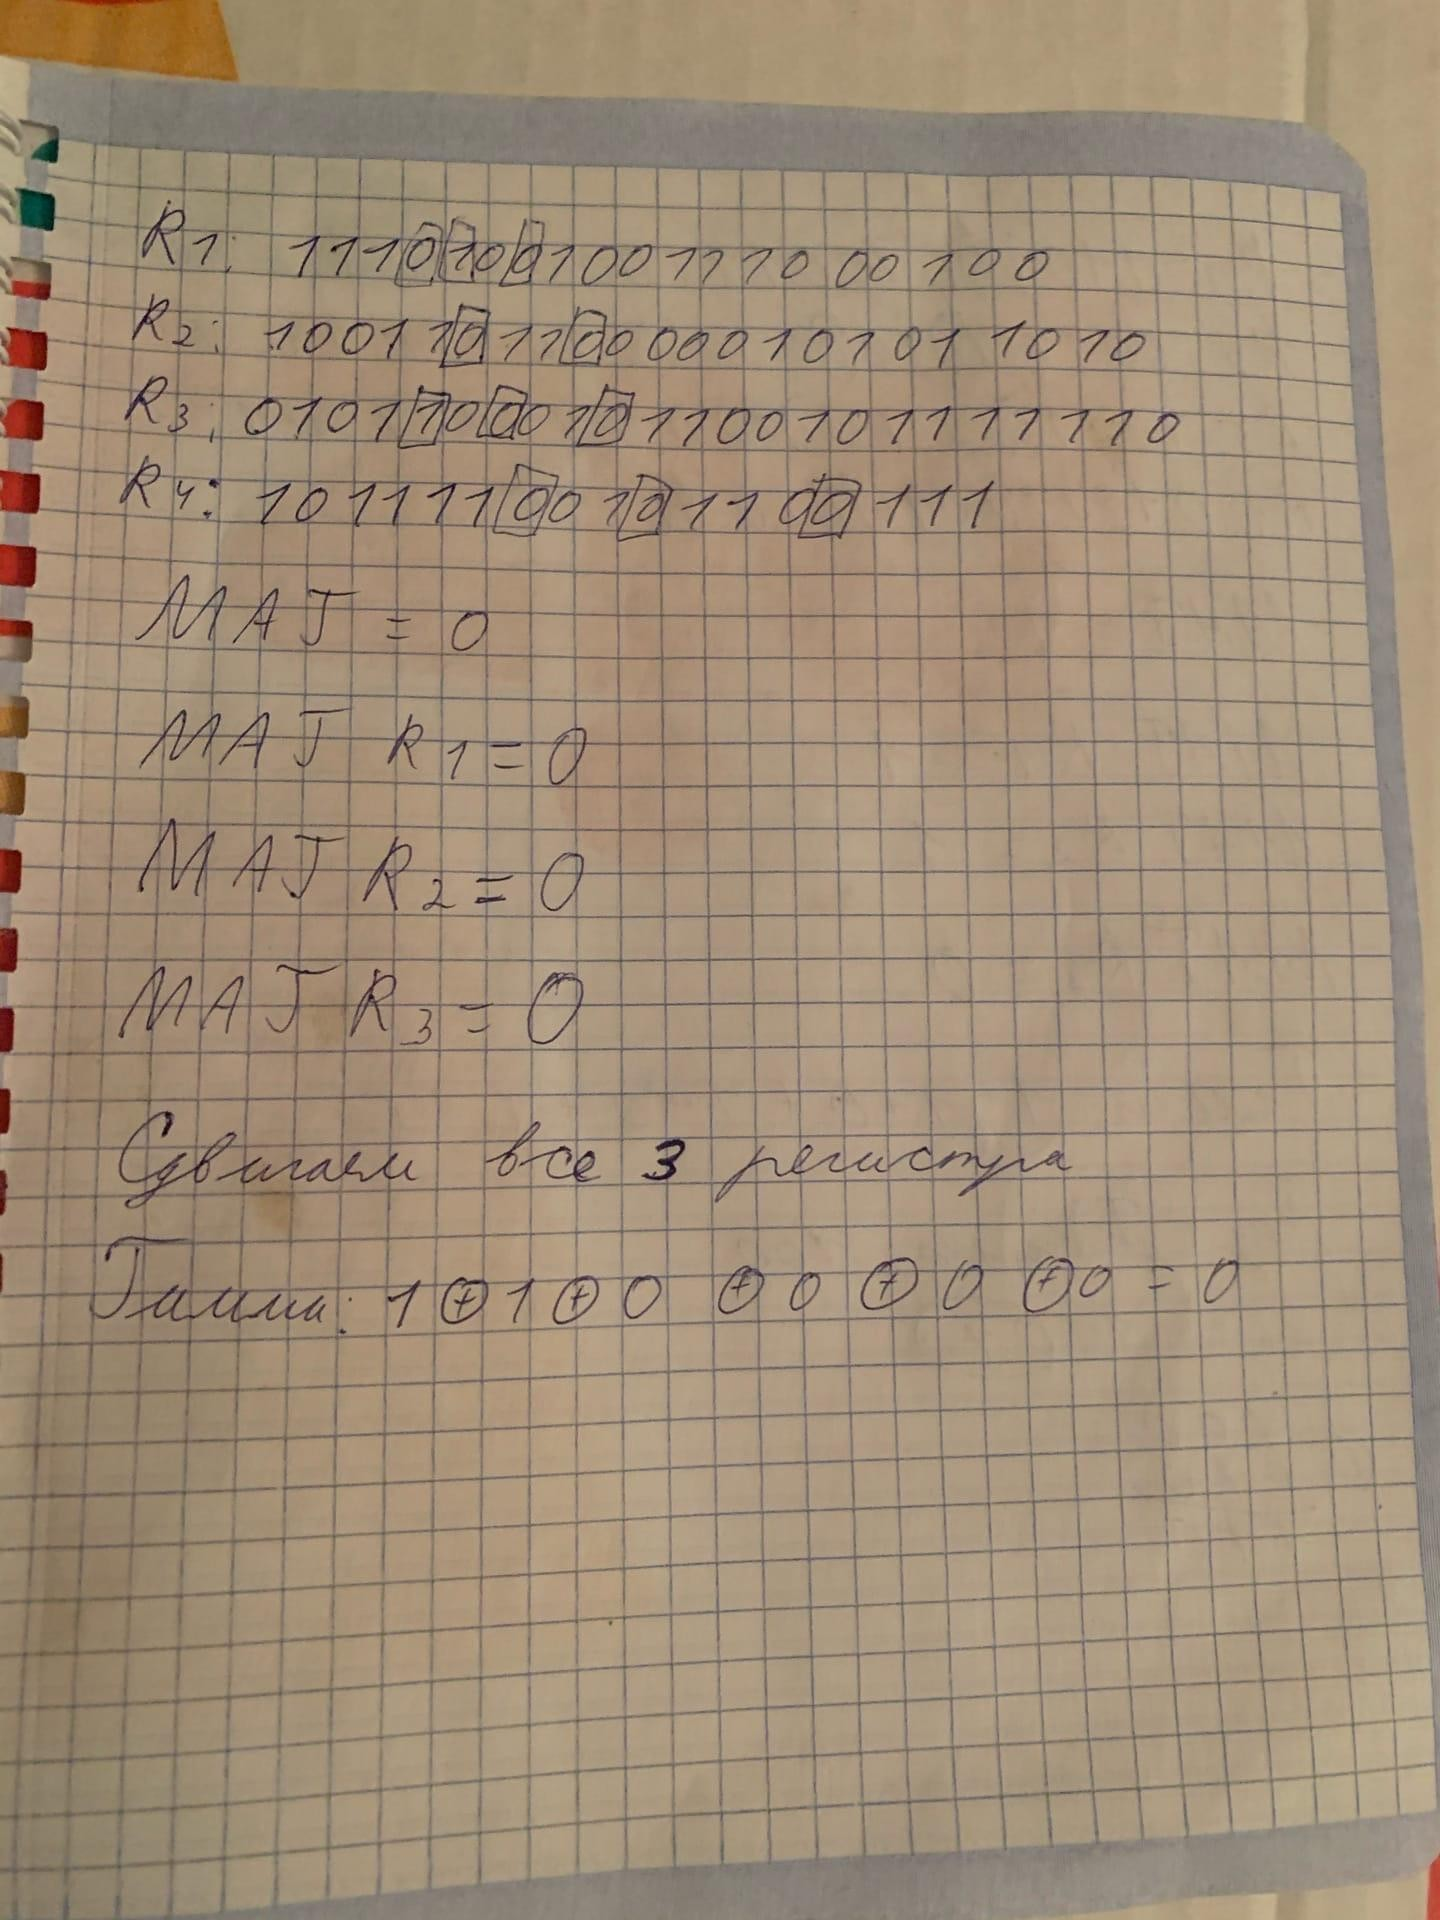 R1: 1110100100111000100
R2: 1001101100000101011010
R3: 01011000101100101111110
R4: 10111100101100111
MAJ = 0
MAJ R1 = 0
MAJ R2 = 0
MAJ R3 = 0
Сдвигаем все 3 регистра
Гамма: 1 ⊕ 1 ⊕ 0 ⊕ 0 ⊕ 0 ⊕ 0 = 0